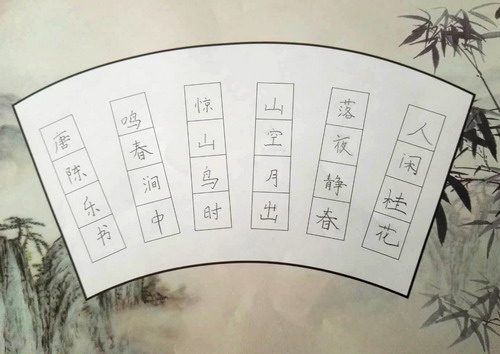 人闲桂花
落夜静春
山空月出
惊山鸟时
鸣春涧中
唐陈乐书